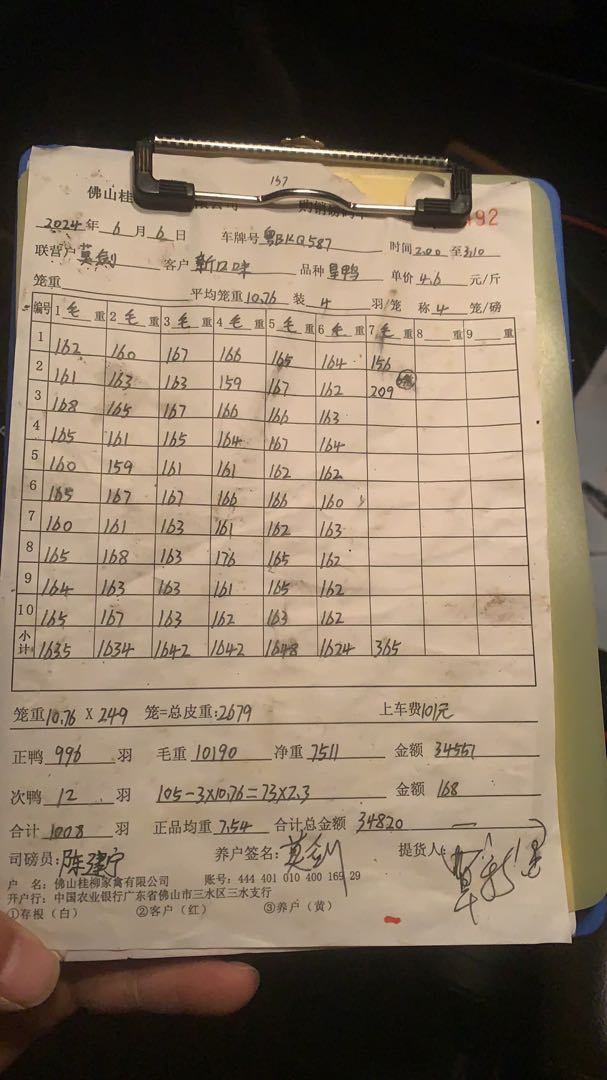 157
佛山桂
492
2024年 6 月 6 日 车牌号 粤BKQ587 时间 2:00 至 3:10
联营户 莫剑 客户 新口味 品种 旱鸭 单价 4.6 元/斤
笼重 平均笼重 10.76 装 4 羽/笼 称 4 笼/磅
编号 1 毛 重 2 毛 重 3 毛 重 4 毛 重 5 毛 重 6 毛 重 7 毛 重 8 重 9 重
1 162 160 167 166 165 164 156
2 161 163 163 159 167 162 209
3 168 165 167 166 166 163
4 165 161 165 164 167 164
5 160 159 161 161 162 162
6 165 167 167 166 166 160
7 160 161 163 161 162 163
8 165 168 163 176 165 162
9 164 163 163 161 165 162
10 165 167 163 162 163 162
小计 1635 1634 1642 1642 1648 1624 365
笼重 10.76 X 249 笼=总皮重: 2679 上车费 101元
正鸭 996 羽 毛重 10190 净重 7511 金额 34551
次鸭 12 羽 105-3×10.76=73×2.3 金额 168
合计 1008 羽 正品均重 7.54 合计总金额 34820
司磅员: 陈建宁 养户签名: 提货人:
户 名: 佛山桂柳家禽有限公司 账号: 444 401 010 400 169 29
开户行: 中国农业银行广东省佛山市三水区三水支行
①存根（白） ②客户（红） ③养户（黄）